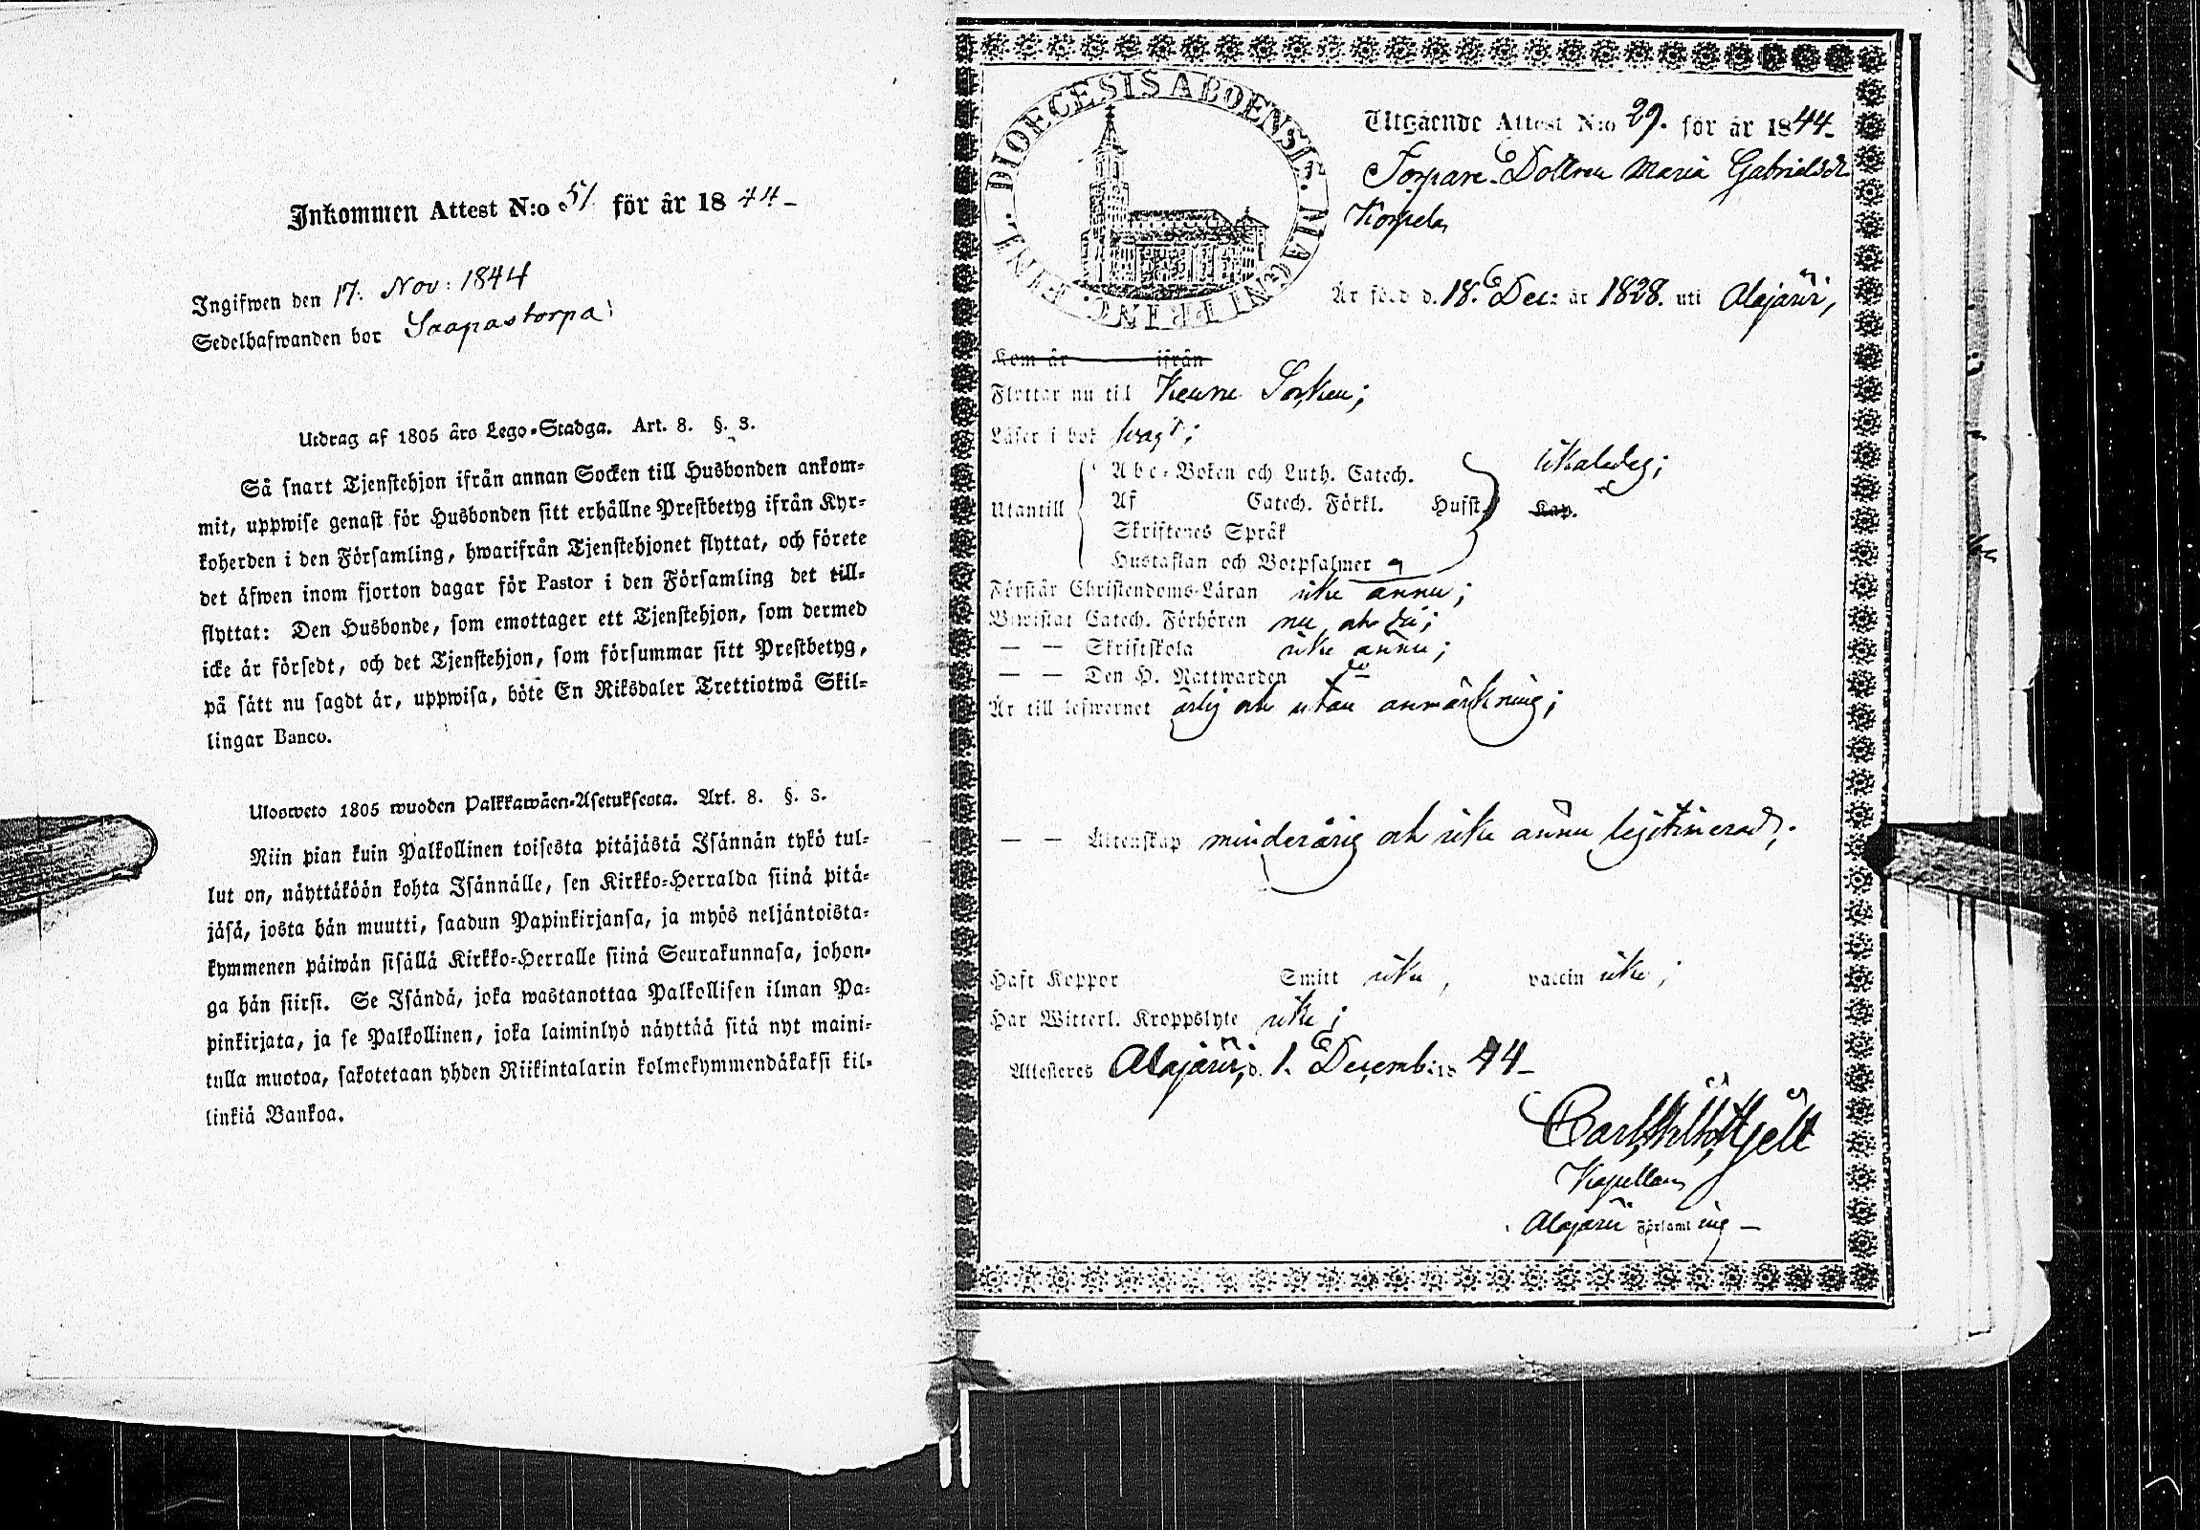 Inkommen Attest N:o 51 för år 1844–
Ingifwen den 17. Nov: 1844
Sedelhafwanden bor Saapastorpa
Utdrag af 1805 års Lego-Stadga. Art. 8. §. 3.
Så snart Tjenstehjon ifrån annan Socken till Husbonden ankom-
mit, uppwise genast för Husbonden sitt erhållne Prestbetyg ifrån Kyr-
koherden i den Församling, hwarifrån Tjenstehjonet flyttat, och förete
det äfwen inom fjorton dagar för Pastor i den Församling det till-
flyttat: Den Husbonde, som emottager ett Tjenstehjon, som dermed
icke är försedt, och det Tjenstehjon, som försummar sitt Prestbetyg,
på sätt nu sagdt är, uppwisa, böte En Riksdaler Trettiotwå Skil-
lingar Banco.
Ulosweto 1805 wuoden Palkkawäen-Asetuksesta. Art. 8. §. 3.
Niin pian kuin Palkollinen toisesta pitäjästä Isännän tykö tul-
lut on, näyttäköön kohta Isännälle, sen Kirkko-Herralda siinä pitä-
jäsä, josta hän muutti, saadun Papinkirjansa, ja myös neljäntoista-
kymmenen päiwän sisällä Kirkko-Herralle siinä Seurakunnasa, johon-
ga hän siirsi. Se Isändä, joka wastanottaa Palkollisen ilman Pa-
pinkirjata, ja se Palkollinen, joka laiminlyö näyttää sitä nyt maini-
tulla muotoa, sakotetaan yhden Riikintalarin kolmekymmendäkaksi kil-
linkiä Bankoa.
DIOECESIS ABOENSIS. MAGNI PRINC. FINL.
Utgående Attest N:o 29. för år 1844–
Torpare Dottren Maria Gabrielsdr
Korpela
Är född d. 18. Dec: år 1828. uti Alajärvi,
Kom år ifrån
Flyttar nu til Keuru Socken;
Läser i bok svagt;
Utantill
Abc-Boken och Luth. Catech.
Af Catech. Förkl. Husst. Kap.
Skriftenes Språk
Hustaflan och Botpsalmer
likaledes;
Förstår Christendoms-Läran icke ännu;
Bewistat Catech. Förhören nu och då;
— — Skriftskola icke ännu;
— — Den H. Nattwarden do
Är till lefwernet ärlig och utan anmärkning;
— — Äktenskap minderårig och icke ännu legitimerad;
Haft Koppor Smitt icke, vaccin icke;
Har Witterl. Kroppslyte icke;
Attesteres Alajärvi, d. 1. Decemb: 18 44–
Hjelt
Kapellan
Alajärvi Församling –